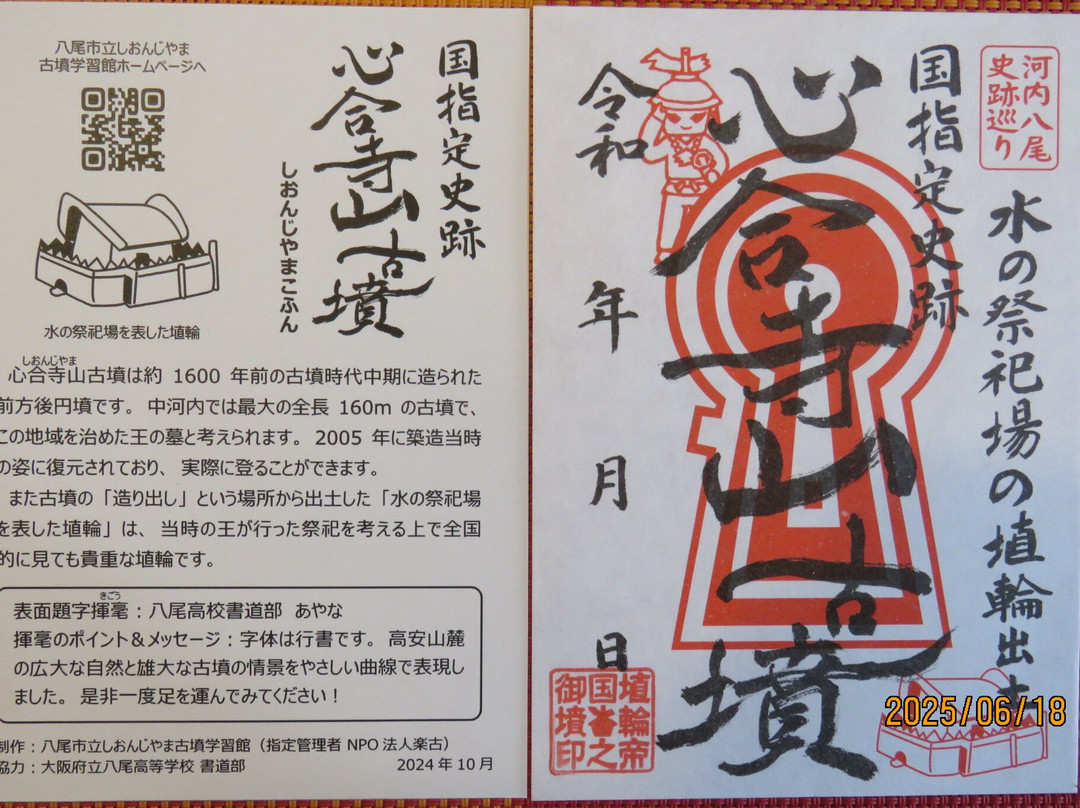 八尾市立しおんじやま
古墳学習館ホームページへ
国指定史跡
心合寺山古墳
しおんじやまこふん
水の祭祀場を表した埴輪
しおんじやま
心合寺山古墳は約 1600 年前の古墳時代中期に造られた
前方後円墳です。中河内では最大の全長 160m の古墳で、
この地域を治めた王の墓と考えられます。2005 年に築造当時
の姿に復元されており、実際に登ることができます。
また古墳の「造り出し」という場所から出土した「水の祭祀場
を表した埴輪」は、当時の王が行った祭祀を考える上で全国
的に見ても貴重な埴輪です。
きごう
表面題字揮毫：八尾高校書道部 あやな
揮毫のポイント＆メッセージ：字体は行書です。高安山麓
の広大な自然と雄大な古墳の情景をやさしい曲線で表現し
ました。是非一度足を運んでみてください！
制作：八尾市立しおんじやま古墳学習館（指定管理者 NPO 法人楽古）
協力：大阪府立八尾高等学校 書道部
2024 年 10 月
河内八尾
史跡巡り
水の祭祀場の埴輪出土
国指定史跡
心合寺山古墳
令和 年 月 日
埴輪帝
国之
御墳印
2025/06/18